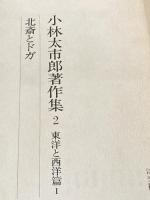 小林太市郎著作集
2
東洋と西洋篇Ⅰ
北斎とドガ